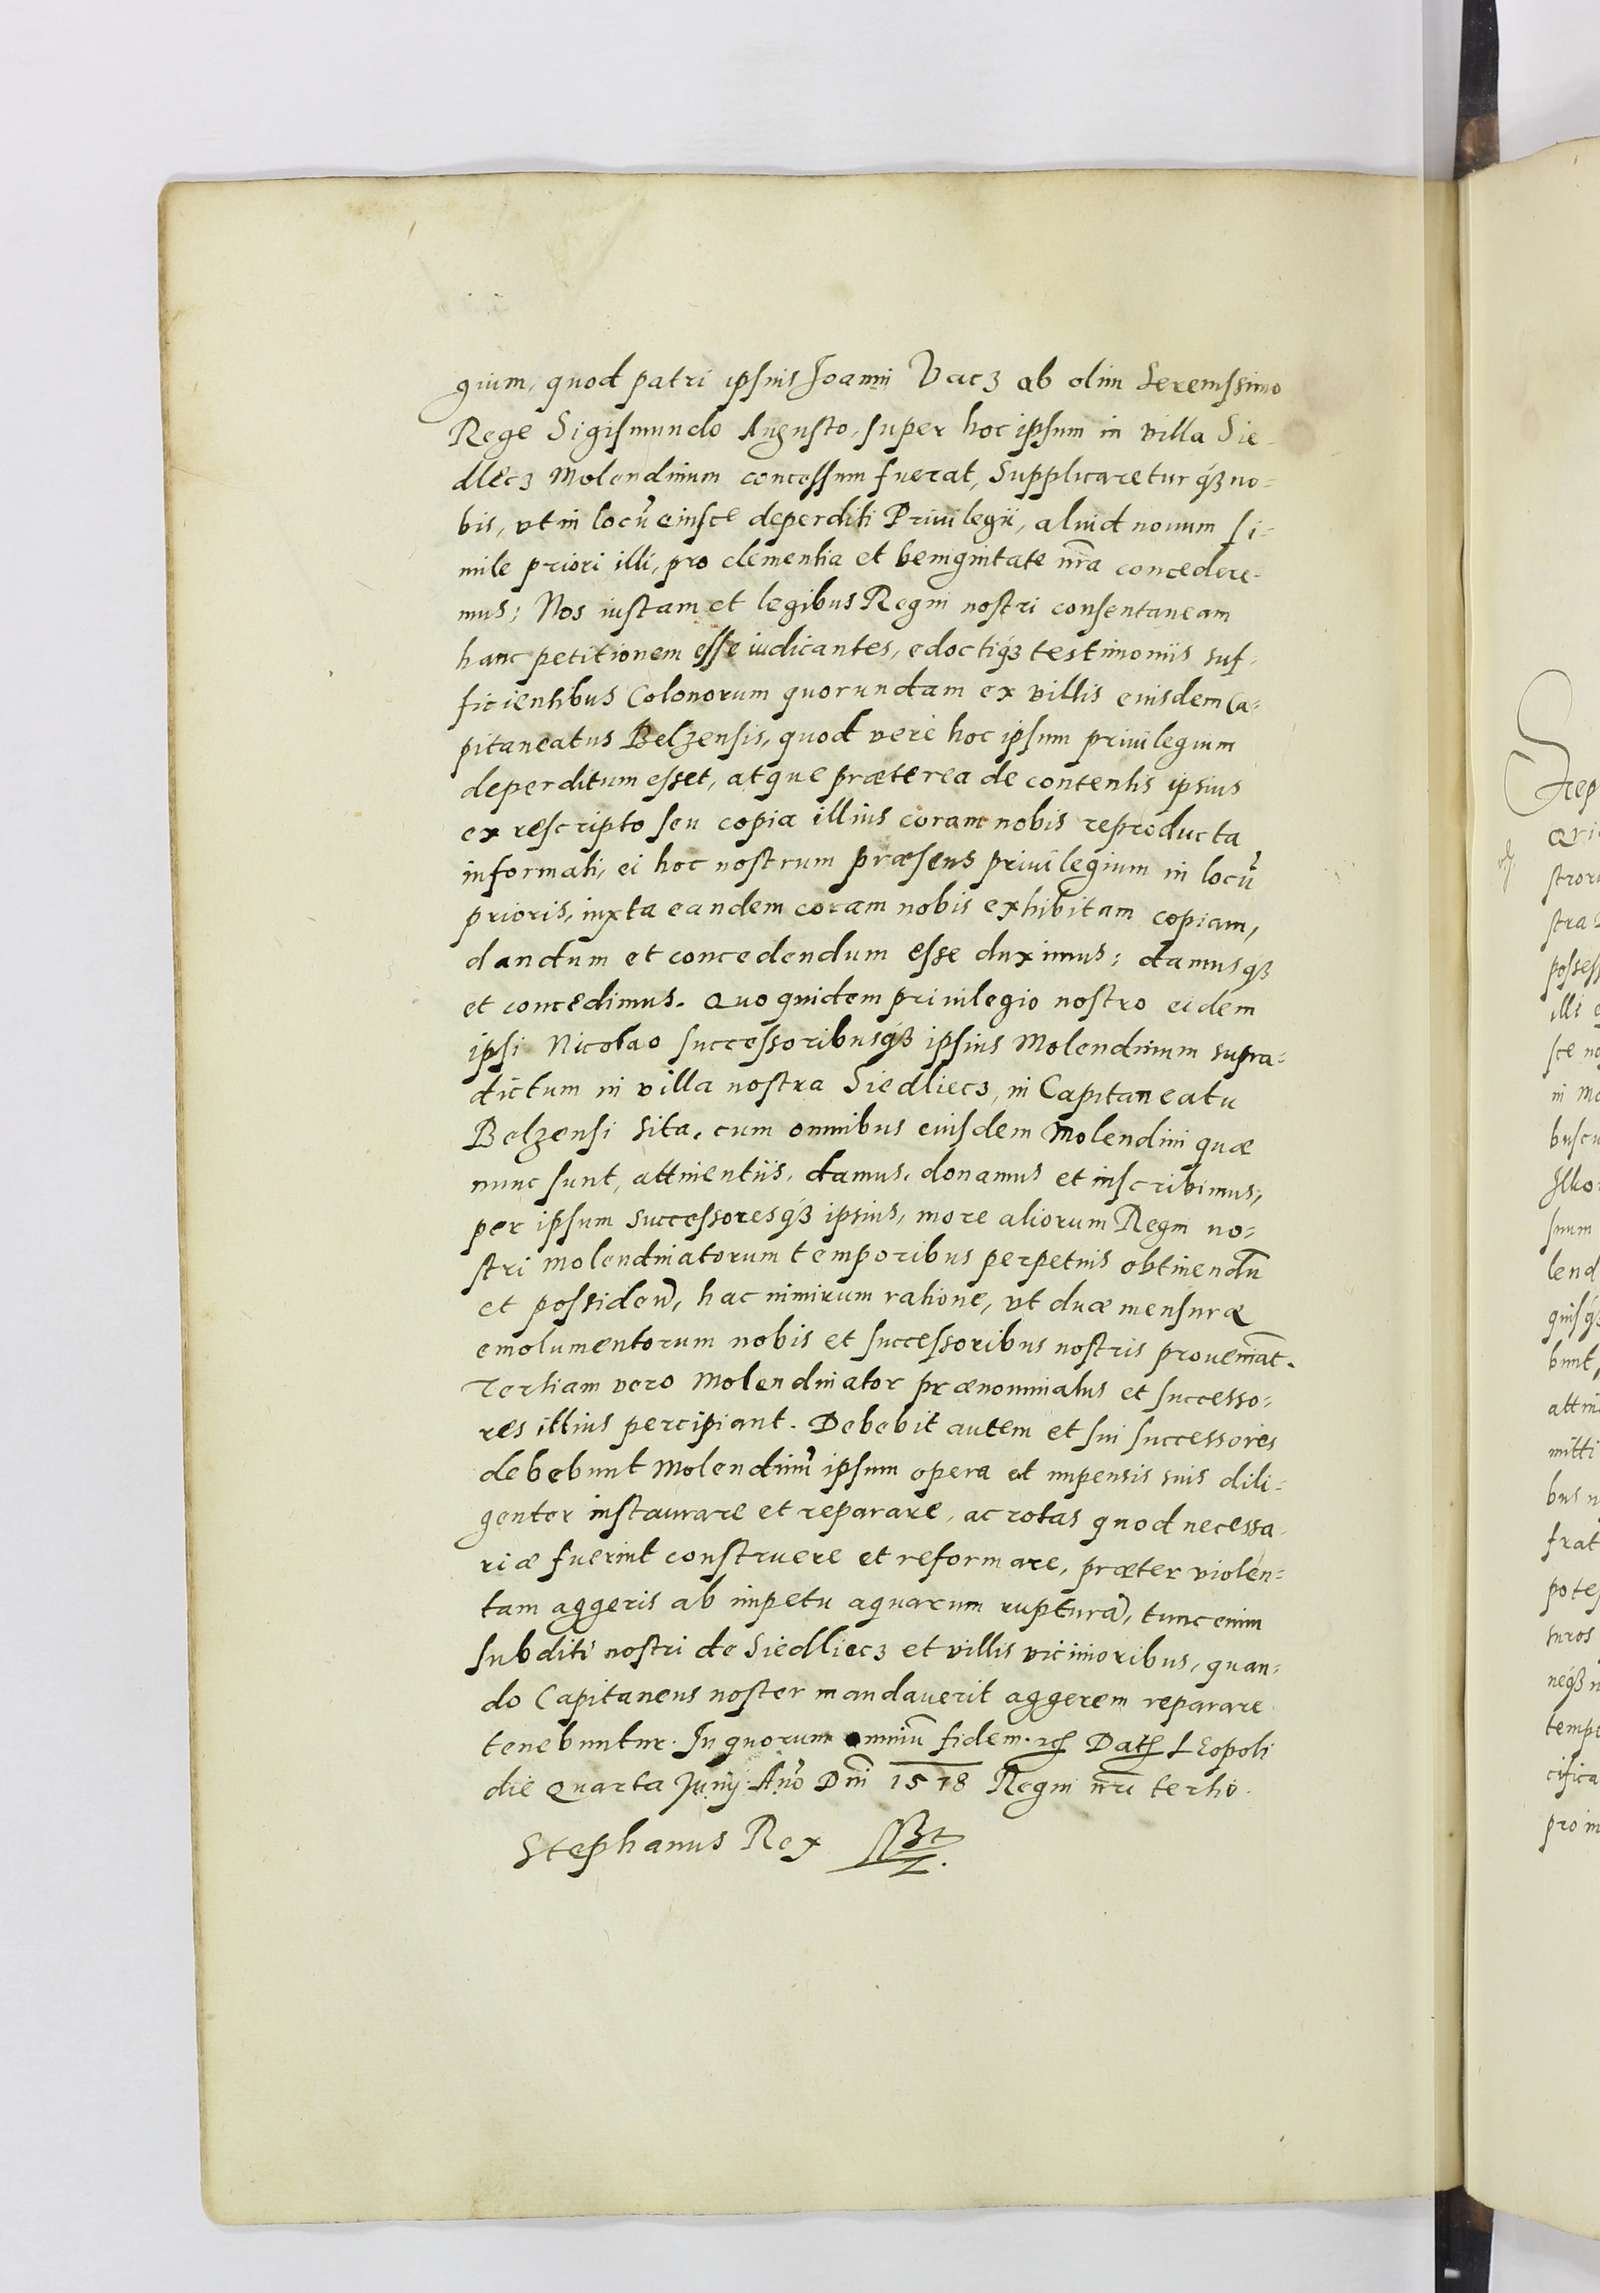 gium, quod patri ipsius Joanni Vacz ab olim Serenissimo
Rege Sigismundo Augusto, super hoc ipsum in villa Sie-
dlecz Molendinum concessum fuerat, Supplicaretur qȝ no-
bis, vt in locũ eiusce deperditi Priuilegii, aliud nouum si-
mile priori illi, pro clementia et benignitate nr̃a concedere-
mus; Nos iustam et legibus Regni nostri consentaneam
hanc petitionem esse iudicantes, edoctiqȝ testimoniis suf-
ficientibus Colonorum quorundam ex villis eiusdem Ca-
pitaneatus Belzensis, quod verè hoc ipsum priuilegium
deperditum esset, atque præterea de contentis ipsius
ex rescripto seu copia illius coram nobis reproducta
informati, ei hoc nostrum præsens priuilegium in locũ
prioris, iuxta eandem coram nobis exhibitam copiam,
dandum et concedendum esse duximus; damusqȝ
et concedimus. Quo quidem priuilegio nostro eidem
ipsi Nicolao successoribusqȝ ipsius Molendinum supra-
dictum in villa nostra Siedliecz, in Capitaneatu
Belzensi sita, cum omnibus eiusdem Molendini quæ
nunc sunt, attinentiis, damus, donamus et inscribimus,
per ipsum successoresqȝ ipsius, more aliorum Regni no-
stri molendinatorum temporibus perpetuis obtinendũ
et possidend̃, hac nimirum ratione, vt duæ mensuræ
emolumentorum nobis et successoribus nostris proueniãt.
Tertiam vero Molendinator prænominatus et successo-
res illius percipiant. Debebit autem et sui successores
debebunt Molendinũ ipsum opera et impensis suis dili-
genter instaurare et reparare, ac rotas quod necessa-
riæ fuerint construere et reformare, præter violen-
tam aggeris ab impetu aquarum rupturã, tunc enim
subditi nostri de Siedliecz et villis vicinioribus, quan-
do Capitaneus noster mandauerit aggerem reparare
tenebuntur. In quorum omniũ fidem. etc̃ Dat̃ Leopoli
die Quarta Junij Añо Dñi 1578 Regni nr̃i tertio.
Stephanus Rex